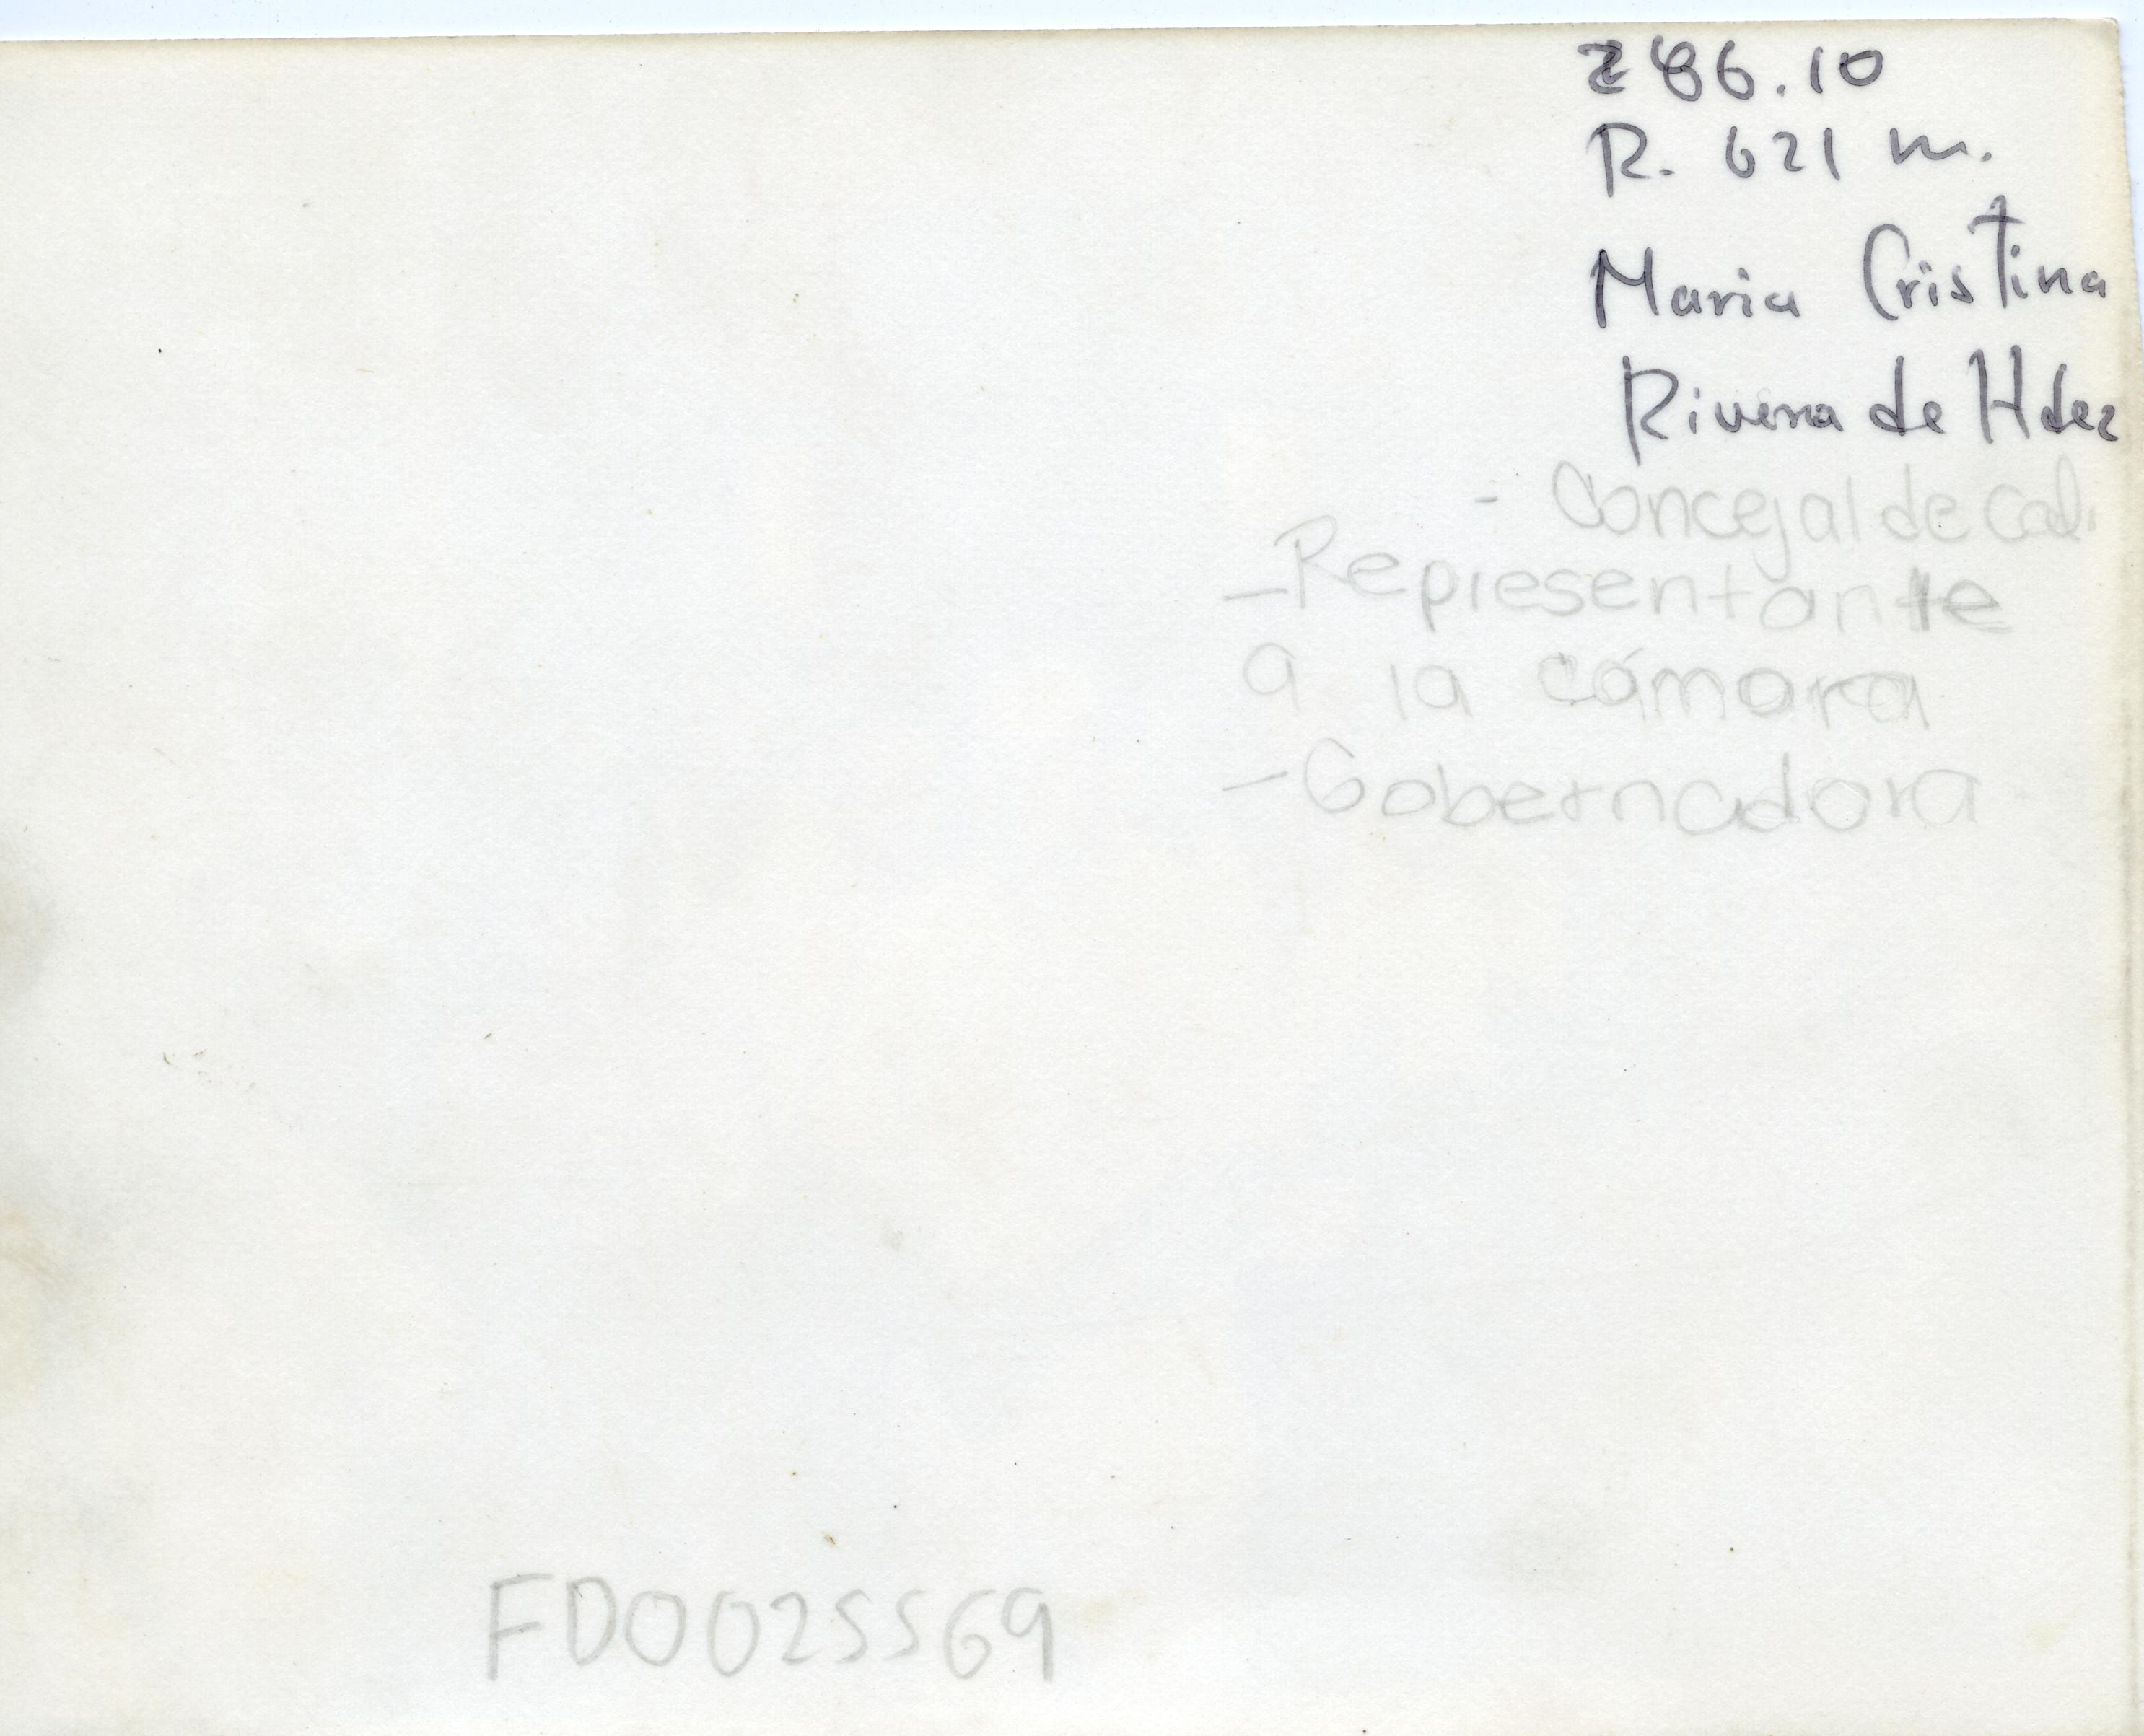 286.10
R. 621 m.
Maria Cristina
Rivera de Hdez
- Concejal de Cali
- Representante
a la cámara
- Gobernadora
FD0025569